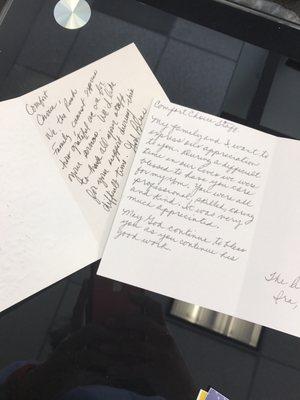 Comfort
Choice,
We the
family cannot express
how grateful we are for
your services. We'd like
to thank all your staff
for your support during this
difficult time. God Bless
Comfort Choice Staff,
My family and I want to
express our appreciation
to you. During a difficult
time in our lives we were
blessed to have you care
for my Mom. You were all
professional, skilled, caring
and kind. It was very
much appreciated.
May God continue to bless
you as you continue his
good work.
The
Ira,